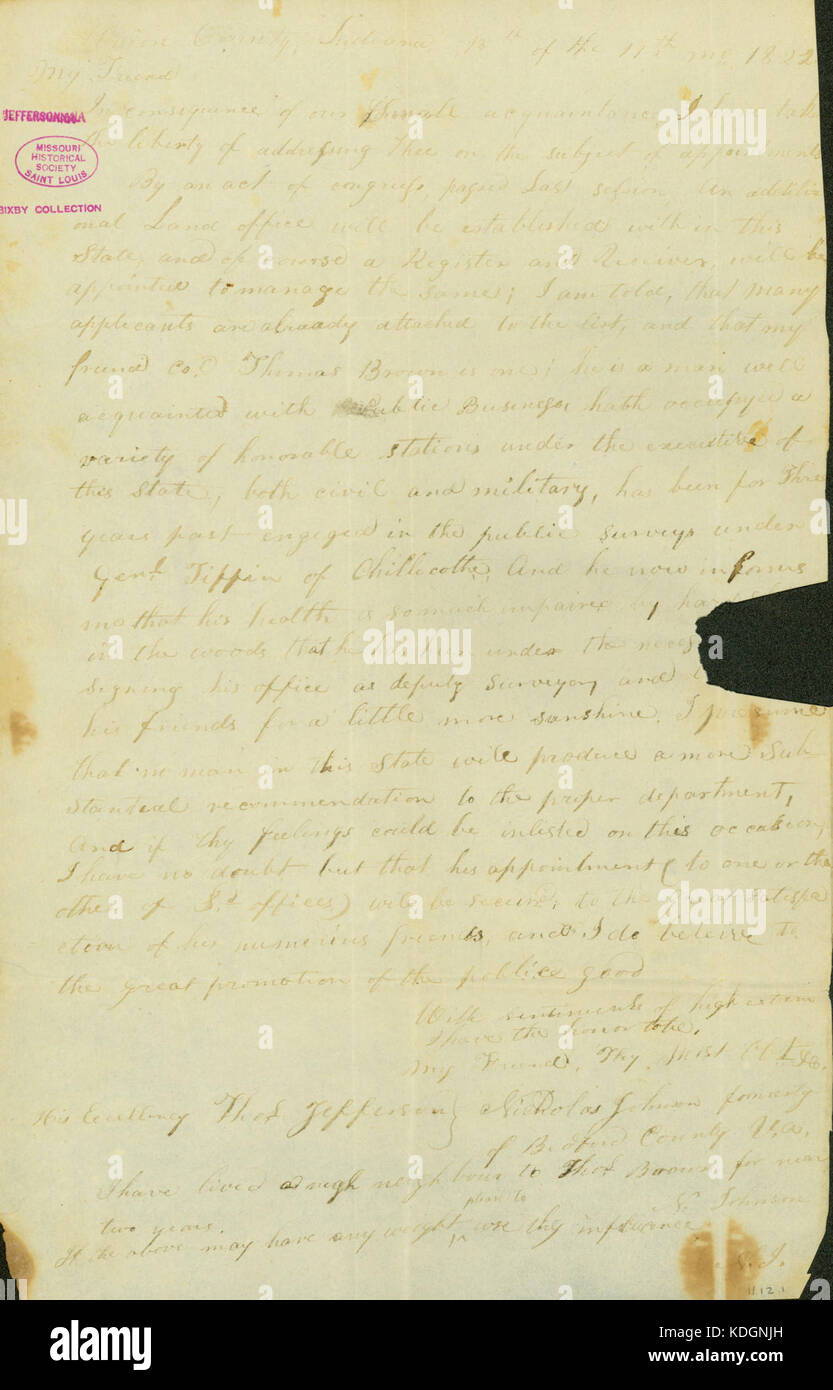 Union County, Indiana 13th of the 11th mo 1822
My Friend
In consequence of our former acquaintance I have
the liberty of addressing thee on the subject of appointments
By an act of congress, passed Last session, An addition
onal Land office will be established with in this
State, and of course a Register and Reciver, will be
appointed to manage the same; I am told, that many
applicants are alraady attached to the list, and that my
friend Col Thomas Brown is one; he is a man well
acquainted with Public Business, hath occupyed a
variety of honorable stations under the executive of
this State, both civil and military, has been for Three
years past engaged in the public surveys under
Genl. Tiffin of Chillecothe, And he now informs
me that his health is so much impaired by
in the woods that he has been under the
signing his office as deputy surveyor, and
his friends for a little more sunshine. I presume
that no man in this State will produce a more Sub
stantial recommendation to the proper department,
And if thy feelings could be inlisted on this occasion,
I have no doubt but that his appointment (to one or the
other of Sd. offices) will be secured, to the great satisfa
ction of his numerous friends, and I do beleive to
the great promotion of the publice good
With sentiments of high esteem
I have the honor to be,
My Friend, Thy, Most Obt &c.
His Excellency Thos Jefferson} Nickolas Johnson formerly
of Bedford County Va.
I have lived a nigh neighbour to Thos Brown for near
two years. N. Johnson
If the above may have any weight please to use thy influence
N. J.
11.12.1
JEFFERSONIANA
MISSOURI
HISTORICAL
SOCIETY
SAINT LOUIS
BIXBY COLLECTION
alamy
Image ID: KDGNJH
www.alamy.com